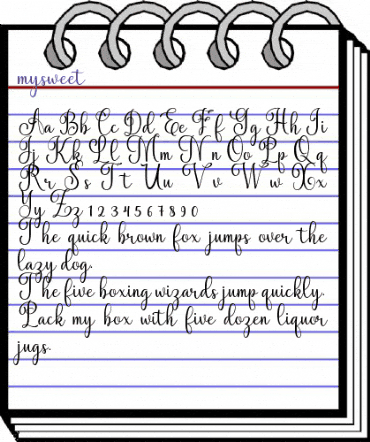 mysweet
Aa Bb Cc Dd Ee Ff Gg Hh Ii
Jj Kk Ll Mm Nn Oo Pp Qq
Rr Ss Tt Uu Vv Ww Xx
Yy Zz 1234567890
The quick brown fox jumps over the
lazy dog.
The five boxing wizards jump quickly.
Pack my box with five dozen liquor
jugs.